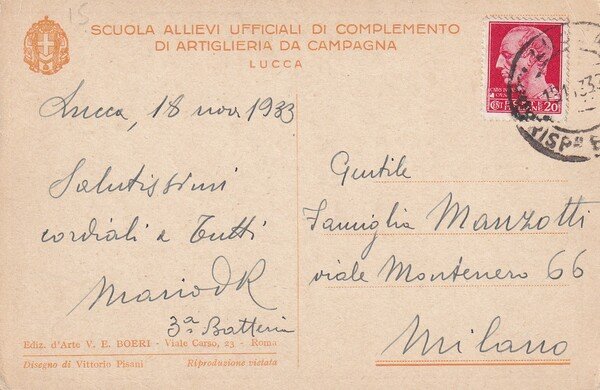 15
SCUOLA ALLIEVI UFFICIALI DI COMPLEMENTO
DI ARTIGLIERIA DA CAMPAGNA
LUCCA
POSTE ITALIANE
CENT 20
Lucca, 18 nov 1933
Salutissimi
cordiali a Tutti
Mario
3ª Batteria
Ediz. d'Arte V. E. BOERI - Viale Carso, 23 - Roma
Disegno di Vittorio Pisani Riproduzione vietata
Gentile
Famiglia Manzotti
viale Montenero 66
Milano